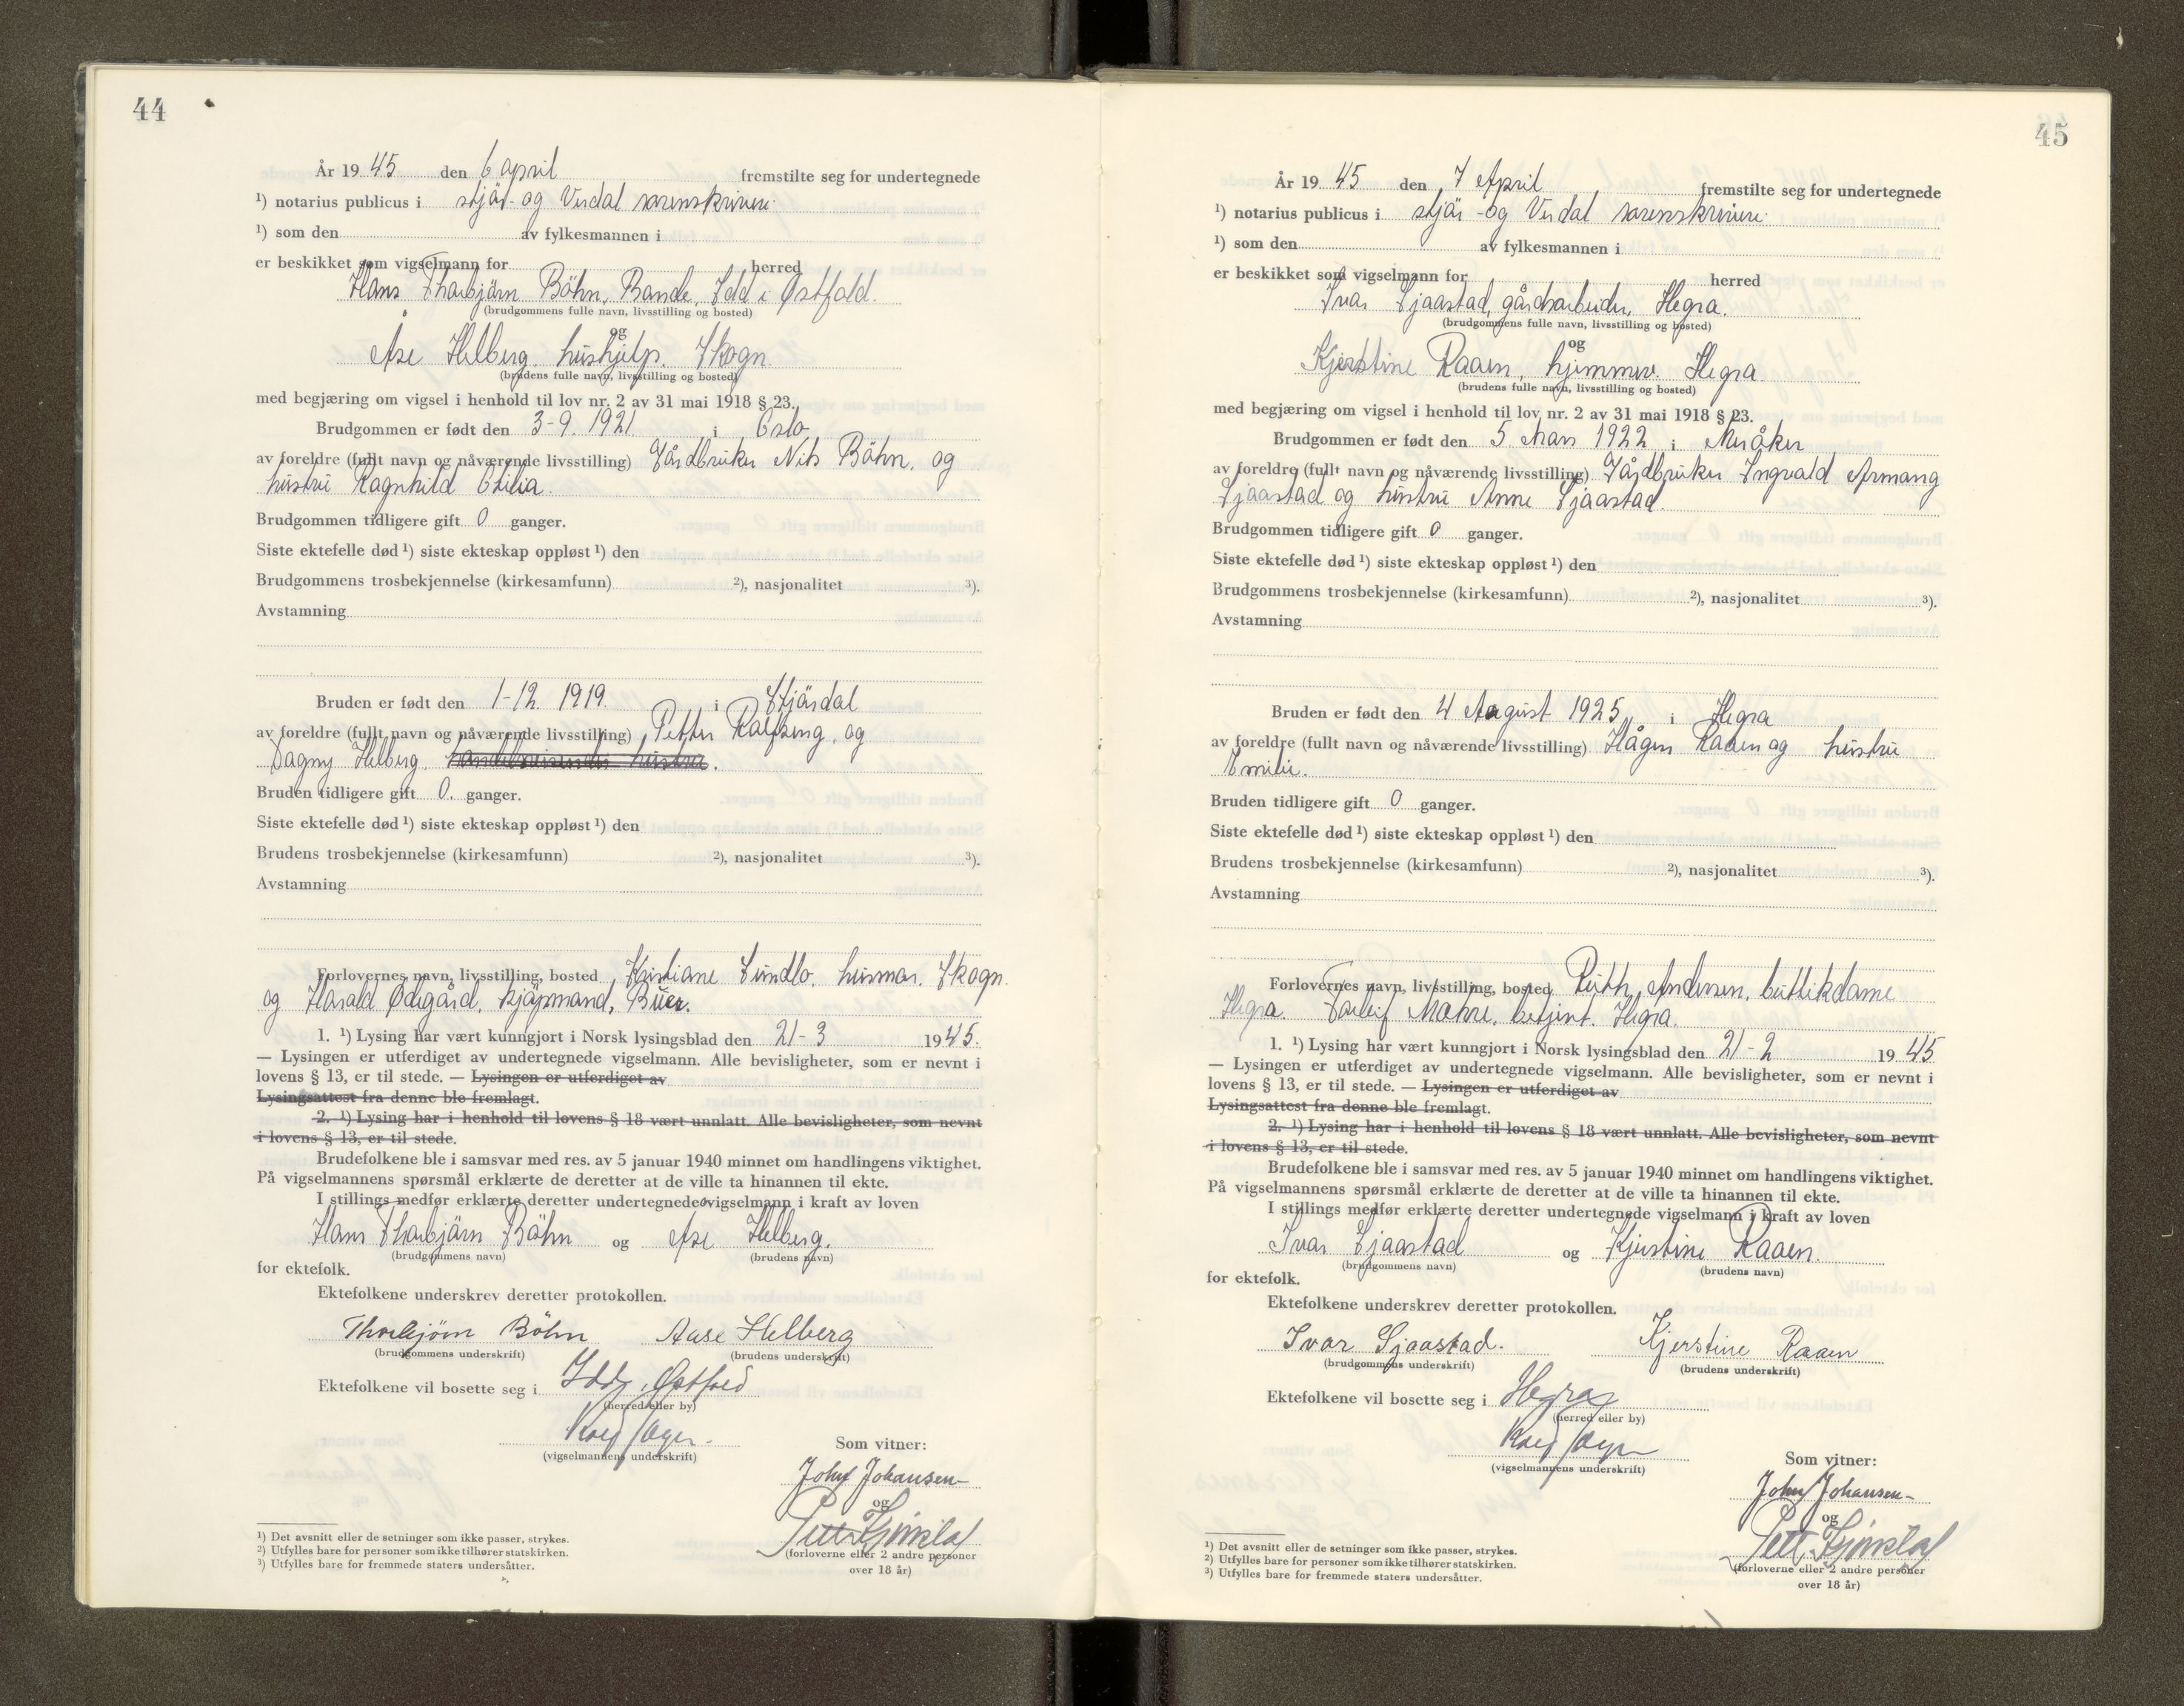 44
År 1945 den 6 april fremstilte seg for undertegnede
¹) notarius publicus i stjør- og Verdal sorenskriveri.
¹) som den av fylkesmannen i
er beskikket som vigselmann for herred
Hans Thorbjørn Böhn, Idd i Østfold.
(brudgommens fulle navn, livsstilling og bosted)
og
Åse Helberg, hushjelp, Skogn.
(brudens fulle navn, livsstilling og bosted)
med begjæring om vigsel i henhold til lov nr. 2 av 31 mai 1918 § 23.
Brudgommen er født den 3-9. 1921 i Oslo
av foreldre (fullt navn og nåværende livsstilling) Gårdbruker Nils Böhn, og
hustru Ragnhild
Brudgommen tidligere gift 0 ganger.
Siste ektefelle død ¹) siste ekteskap oppløst ¹) den
Brudgommens trosbekjennelse (kirkesamfunn) ²), nasjonalitet ³).
Avstamning
Bruden er født den 1-12. 1919. i Stjørdal
av foreldre (fullt navn og nåværende livsstilling) Petter og
Dagny Helberg,
Bruden tidligere gift 0. ganger.
Siste ektefelle død ¹) siste ekteskap oppløst ¹) den
Brudens trosbekjennelse (kirkesamfunn) ²), nasjonalitet ³).
Avstamning
Forlovernes navn, livsstilling, bosted Kristiane husmor, Skogn
og Harald Ødegård, kjøpmand,
1. ¹) Lysing har vært kunngjort i Norsk lysingsblad den 21-3 1945.
— Lysingen er utferdiget av undertegnede vigselmann. Alle bevisligheter, som er nevnt i
lovens § 13, er til stede. — Lysingen er utferdiget av
Lysingsattest fra denne ble fremlagt.
2. ¹) Lysing har i henhold til lovens § 18 vært unnlatt. Alle bevisligheter, som nevnt
i lovens § 13, er til stede.
Brudefolkene ble i samsvar med res. av 5 januar 1940 minnet om handlingens viktighet.
På vigselmannens spørsmål erklærte de deretter at de ville ta hinannen til ekte.
I stillings medfør erklærte deretter undertegnede vigselmann i kraft av loven
Hans Thorbjørn Böhn og Åse Helberg.
(brudgommens navn) (brudens navn)
for ektefolk.
Ektefolkene underskrev deretter protokollen.
Thorbjørn Böhn Aase Helberg
(brudgommens underskrift) (brudens underskrift)
Ektefolkene vil bosette seg i Idd, Østfold
(herred eller by)
(vigselmannens underskrift)
Som vitner:
John Johansen
og
(forloverne eller 2 andre personer
over 18 år)
¹) Det avsnitt eller de setninger som ikke passer, strykes.
²) Utfylles bare for personer som ikke tilhører statskirken.
³) Utfylles bare for fremmede staters undersåtter.
45
År 1945 den 7 April fremstilte seg for undertegnede
¹) notarius publicus i stjør- og Verdal sorenskriveri.
¹) som den av fylkesmannen i
er beskikket som vigselmann for herred
Ivar Sjaastad, gårdsarbeider, Hegra.
(brudgommens fulle navn, livsstilling og bosted)
og
Kjerstine Raaen, hjemmev. Hegra
(brudens fulle navn, livsstilling og bosted)
med begjæring om vigsel i henhold til lov nr. 2 av 31 mai 1918 § 23.
Brudgommen er født den 5 Mars 1922 i Meråker
av foreldre (fullt navn og nåværende livsstilling) Gårdbruker Ingvald Armang
Sjaastad og hustru Anne Sjaastad.
Brudgommen tidligere gift 0 ganger.
Siste ektefelle død ¹) siste ekteskap oppløst ¹) den
Brudgommens trosbekjennelse (kirkesamfunn) ²), nasjonalitet ³).
Avstamning
Bruden er født den 4 August 1925 i Hegra
av foreldre (fullt navn og nåværende livsstilling) Hågen Raaen og hustru
Emilie.
Bruden tidligere gift 0 ganger.
Siste ektefelle død ¹) siste ekteskap oppløst ¹) den
Brudens trosbekjennelse (kirkesamfunn) ²), nasjonalitet ³).
Avstamning
Forlovernes navn, livsstilling, bosted Ruth Andersen, butikdame
Hegra. Torleif Mæhre, betjent. Hegra.
1. ¹) Lysing har vært kunngjort i Norsk lysingsblad den 21-2 1945
— Lysingen er utferdiget av undertegnede vigselmann. Alle bevisligheter, som er nevnt i
lovens § 13, er til stede. — Lysingen er utferdiget av
Lysingsattest fra denne ble fremlagt.
2. ¹) Lysing har i henhold til lovens § 18 vært unnlatt. Alle bevisligheter, som nevnt
i lovens § 13, er til stede.
Brudefolkene ble i samsvar med res. av 5 januar 1940 minnet om handlingens viktighet.
På vigselmannens spørsmål erklærte de deretter at de ville ta hinannen til ekte.
I stillings medfør erklærte deretter undertegnede vigselmann i kraft av loven
Ivar Sjaastad og Kjerstine Raaen.
(brudgommens navn) (brudens navn)
for ektefolk.
Ektefolkene underskrev deretter protokollen.
Ivar Sjaastad. Kjerstine Raaen
(brudgommens underskrift) (brudens underskrift)
Ektefolkene vil bosette seg i Hegra
(herred eller by)
(vigselmannens underskrift)
Som vitner:
John Johansen
og
(forloverne eller 2 andre personer
over 18 år)
¹) Det avsnitt eller de setninger som ikke passer, strykes.
²) Utfylles bare for personer som ikke tilhører statskirken.
³) Utfylles bare for fremmede staters undersåtter.